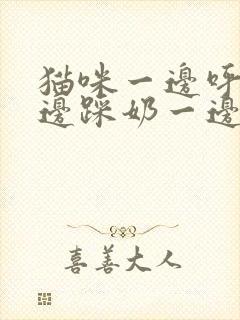 猫咪一邊呀
邊踩奶一邊
喜善大人